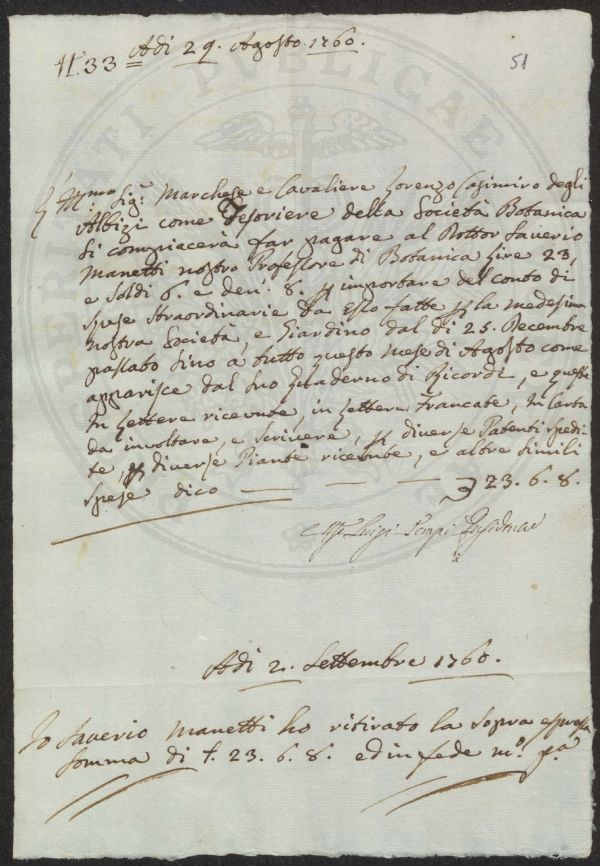 N.° 33
Adi 29. Agosto 1760.
51
Ill.mo Sig.r Marchese e Cavaliere Lorenzo Casimiro degli
Albizi come Tesoriere della Società Botanica
si compiacerà far pagare al Dottor Saverio
Manetti nostro Professore di Botanica Lire 23,
e Soldi 6. e den: 8. p importare del conto di
spese straordinarie da Esso fatte p la medesima
nostra Società, e Giardino dal di 25. Decembre
passato sino a tutto questo Mese di Agosto come
apparisce dal suo Quaderno di Ricordi, e questi
In Lettere ricevute, in Lettere Francate, In Carta
da involtare, e scrivere, p diverse Patenti spedi
te, p diverse Piante ricevute, e altre simili
spese dico — — — 23. 6. 8.
Luigi Tempi Presidente
Adi 2. Settembre 1760.
Io Saverio Manetti ho ritirato la sopra espressa
somma di £. 23. 6. 8. ed in fede m.° p.a
SPERITATI PUBLICAE